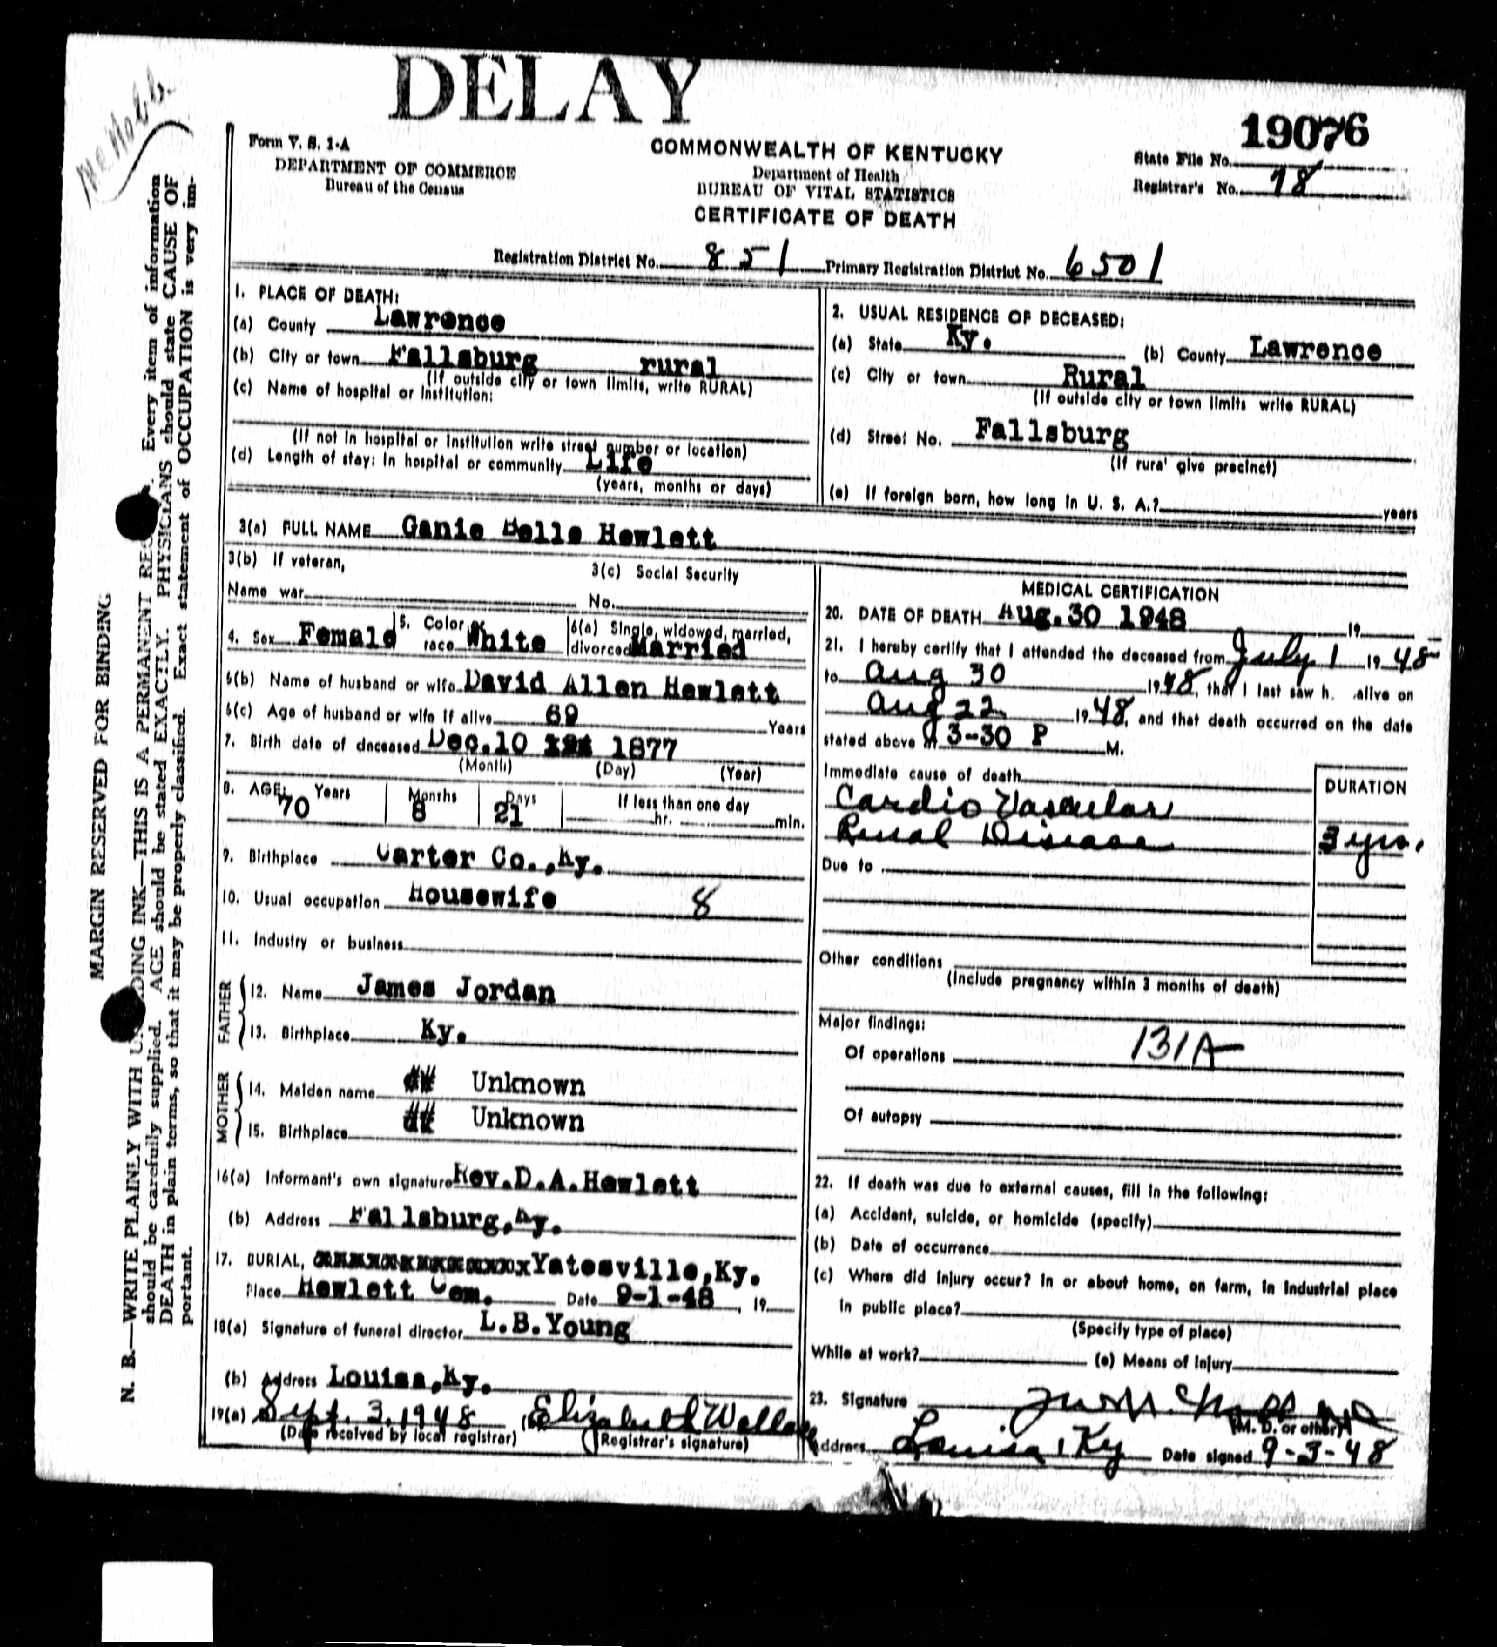 DELAY
19076
Form V. S. 1-A
DEPARTMENT OF COMMERCE
Bureau of the Census
COMMONWEALTH OF KENTUCKY
Department of Health
BUREAU OF VITAL STATISTICS
CERTIFICATE OF DEATH
State File No.
Registrar's No. 78
Registration District No. 851 Primary Registration District No. 6501
1. PLACE OF DEATH:
(a) County Lawrence
(b) City or town Fallsburg rural
(If outside city or town limits, write RURAL)
(c) Name of hospital or institution:
(If not in hospital or institution write street number or location)
(d) Length of stay: In hospital or community Life
(years, months or days)
2. USUAL RESIDENCE OF DECEASED:
(a) State Ky. (b) County Lawrence
(c) City or town Rural
(If outside city or town limits write RURAL)
(d) Street No. Fallsburg
(If rura' give precinct)
(e) If foreign born, how long in U. S. A.? years
3(a) FULL NAME Ganie Belle Hewlett
3(b) If veteran,
Name war
3(c) Social Security
No.
4. Sex Female 5. Color or race White 6(a) Single, widowed, married, divorced Married
6(b) Name of husband or wife David Allen Hewlett
6(c) Age of husband or wife if alive 69 Years
7. Birth date of deceased Dec. 10 1877
(Month) (Day) (Year)
8. AGE: Years 70 Months 8 Days 21 If less than one day hr. min.
9. Birthplace Carter Co., Ky.
10. Usual occupation Housewife 8
11. Industry or business
FATHER
12. Name James Jordan
13. Birthplace Ky.
MOTHER
14. Maiden name Unknown
15. Birthplace Unknown
16(a) Informant's own signature Rev. D. A. Hewlett
(b) Address Fallsburg, Ky.
17. BURIAL, Yatesville, Ky.
Place Hewlett Cem. Date 9-1-48, 19
18(a) Signature of funeral director L. B. Young
(b) Address Louisa, Ky.
19(a) Sept. 3, 1948 (b) Elizabeth Wallace
(Date received by local registrar) (Registrar's signature)
MEDICAL CERTIFICATION
20. DATE OF DEATH Aug. 30 1948 19
21. I hereby certify that I attended the deceased from July 1 1948
to Aug 30 1948, that I last saw h. alive on
Aug 22 1948, and that death occurred on the date
stated above at 3-30 P M.
Immediate cause of death DURATION
Cardio Vascular
Renal Disease 3 yrs.
Due to
Other conditions
(Include pregnancy within 3 months of death)
Major findings:
Of operations 131A
Of autopsy
22. If death was due to external causes, fill in the following:
(a) Accident, suicide, or homicide (specify)
(b) Date of occurrence
(c) Where did injury occur? In or about home, on farm, in industrial place
in public place?
(Specify type of place)
While at work? (e) Means of injury
23. Signature
(M. D. or other)
Address Louisa, Ky Date signed 9-3-48
MARGIN RESERVED FOR BINDING
N. B.—WRITE PLAINLY WITH UNFADING INK—THIS IS A PERMANENT RECORD. Every item of information
should be carefully supplied. AGE should be stated EXACTLY. PHYSICIANS should state CAUSE OF
DEATH in plain terms, so that it may be properly classified. Exact statement of OCCUPATION is very im-
portant.